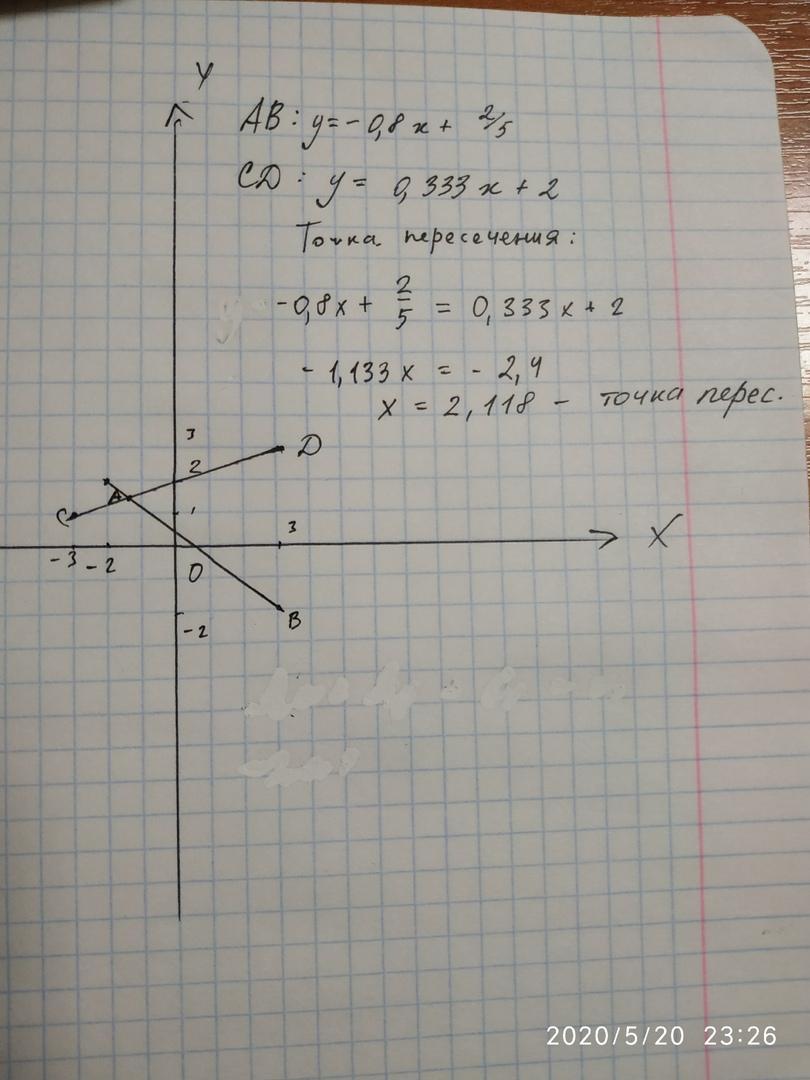 Y
AB: y = -0,8x + 2/5
CD: y = 0,333x + 2
Точка пересечения:
-0,8x + 2/5 = 0,333x + 2
-1,133x = -2,4
x = 2,118 - точка перес.
3
D
2
A
C
1
3
X
-3 -2
0
B
-2
2020/5/20 23:26